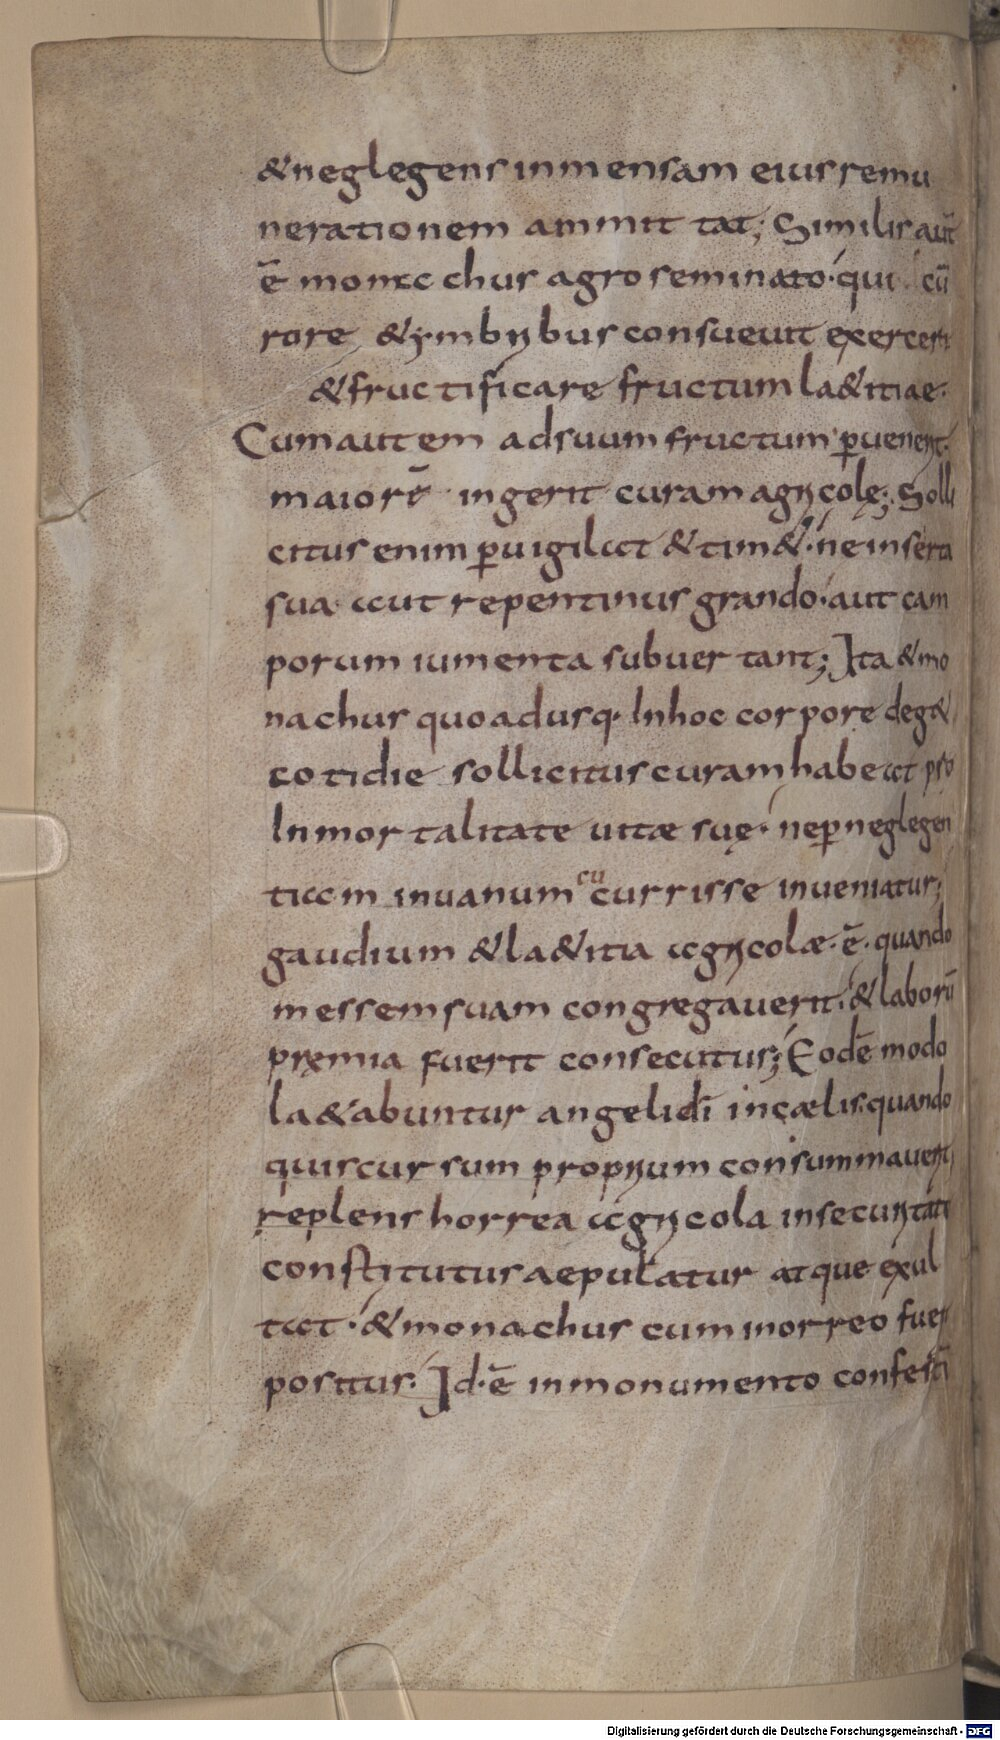 &neglegens inmensam eius remu
nerationem ammit tat; Similis aut̄
ē monac chus agro seminato· qui cū
rore & ymbribus consueuit exerceri
& fructificare fructum la&itiae·
Cum autem ad suum fructum ꝑuenerit·
maiorē ingerit curam agricolę; Solli
citus enim ꝑuigilat & tim&· ne inserta
sua aut repentinus grando· aut cam
porum iumenta subuer tant; Ita & mo
nachus quo adusq· In hoc corpore deg&
cotidie sollicitus curam habeat pro
Inmor talitate uitæ suę· ne ꝑ neglegen
tiam in uanum cucurrisse inueniatur;
gaudium & la&itia agricolæ· ē· quando
messem suam congregauerit· & laborū
pręmia fuerit consecutus; Eodē modo
la&abuntur angeli dī in cælis· quando
quis cursum proprium consummauerit
replens horrea agricola in securitate
constitutus aepulatur atque exul
tat· & monachus cum in orreo fuerit
positus· Id· ē in monumento confestī
Digitalisierung gefördert durch die Deutsche Forschungsgemeinschaft - DFG